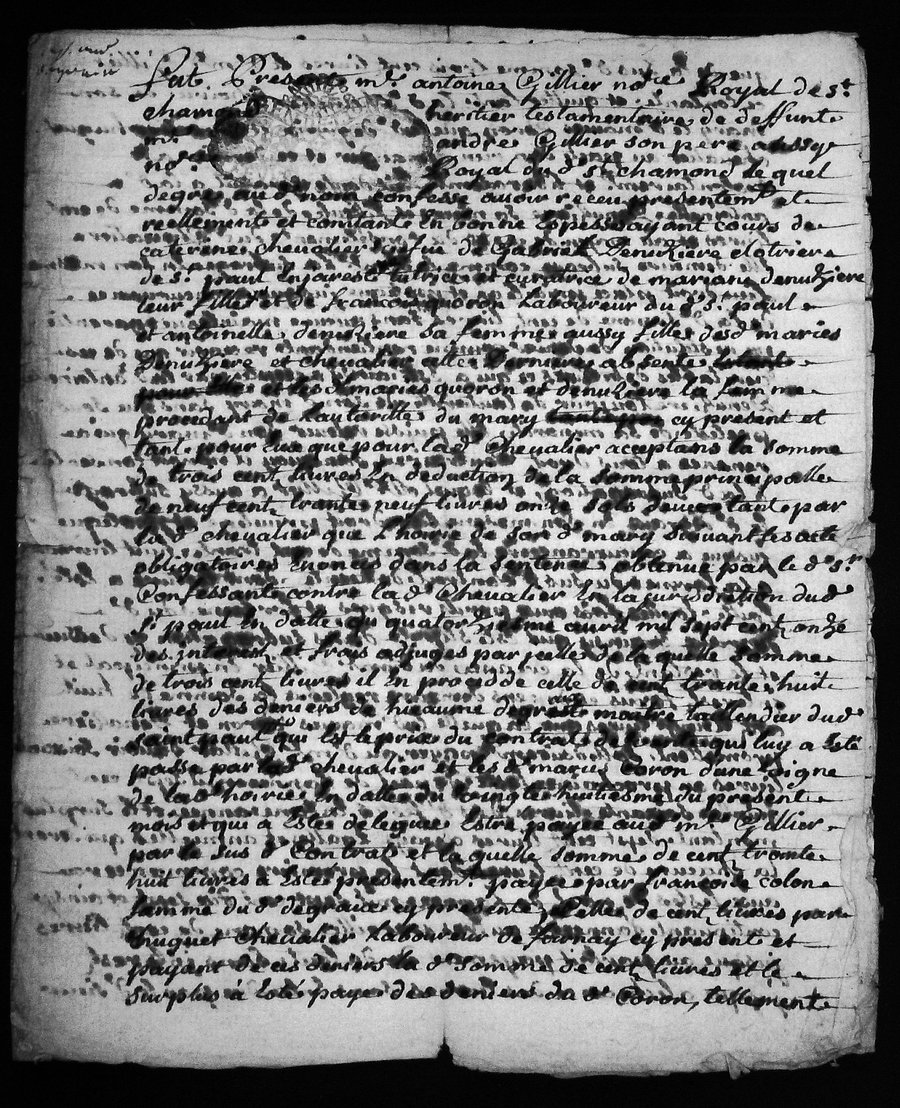 Fut Present me antoine Gillier nore Royal de st
chamond heritier testamentaire de deffunt
me andre Gillier son pere aussy
nore Royal du d st chamond lequel
degre au d nom confesse avoir receu presentemt et
reellement et constant En bonne Espesse ayant cours de
caterine chevalier vefue de Gabriel Denuziere clotrier
de st paul En jarest tutrice et curatrice de mariane denuziere
leur fillie et de francois quoron Laboureur du d st paul
et antoinette denuziere sa femme aussy fille desd maries
Denuziere et chevalier cette Derniere absente
et lesd maries quoron et denuziere la femme
procedant de Lautoritte du mary cy present et
tant pour eux que pour lad Chevalier acceptans la somme
de trois cent livres En deduction de la somme principalle
de neuf cent trante neuf livres onze sols deues tant par
la d chevalier que Lhoirie de son d mary Suivant les acte
obligatoires Enonces dans la sentence obtenue par le d sr
Confessant contre lad Chevalier En la jurisdiction dud
st paul En datte du quatorziesme avril mil sept cent onze
des interest et frois adjuges par jcelle de la quelle somme
de trois cent livres il En procedde celle de cent trante huit
livres des deniers de degraix maitre taillendier dud
saint paul qui Est le prix du Contrat de vente qui luy a Esté
passe par lad chevalier et lesd maries Coron dune vigne
de lad hoirie En datte du vingt huitiesme du present
mois et qui a Estée deleguée Estre payee aud me Gillier
par le sus d Contrat et la quelle somme de cent trante
huit livres a Estée presentemt payée par francoise colon
femme dud degraix cy presente, Celle de cent livres par
huguet Chevalier Laboureur de farnay cy present et
payant de ces deniers la d somme de cent livres et le
surplus a Esté paye des deniers du d Coron, tellement